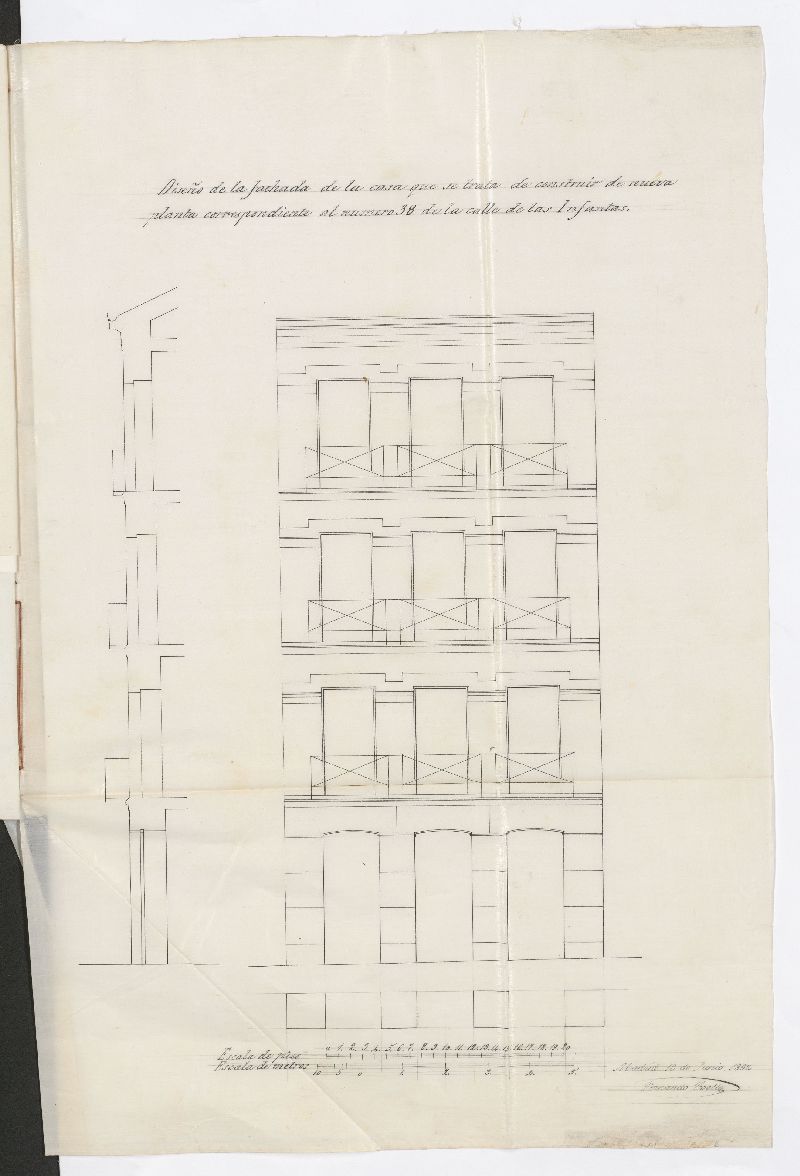 Diseño de la fachada de la casa que se trata de construir de nueva
planta correspondiente al numero 38 de la calle de las Infantas.
Escala de pies
0 1. 2. 3. 4. 5. 6. 7. 8. 9. 10. 11. 12. 13. 14. 15. 16. 17. 18. 19. 20
Escala de metros
10 5 0 1. 2. 3. 4. 5.
Madrid 10 de Junio
Fernando